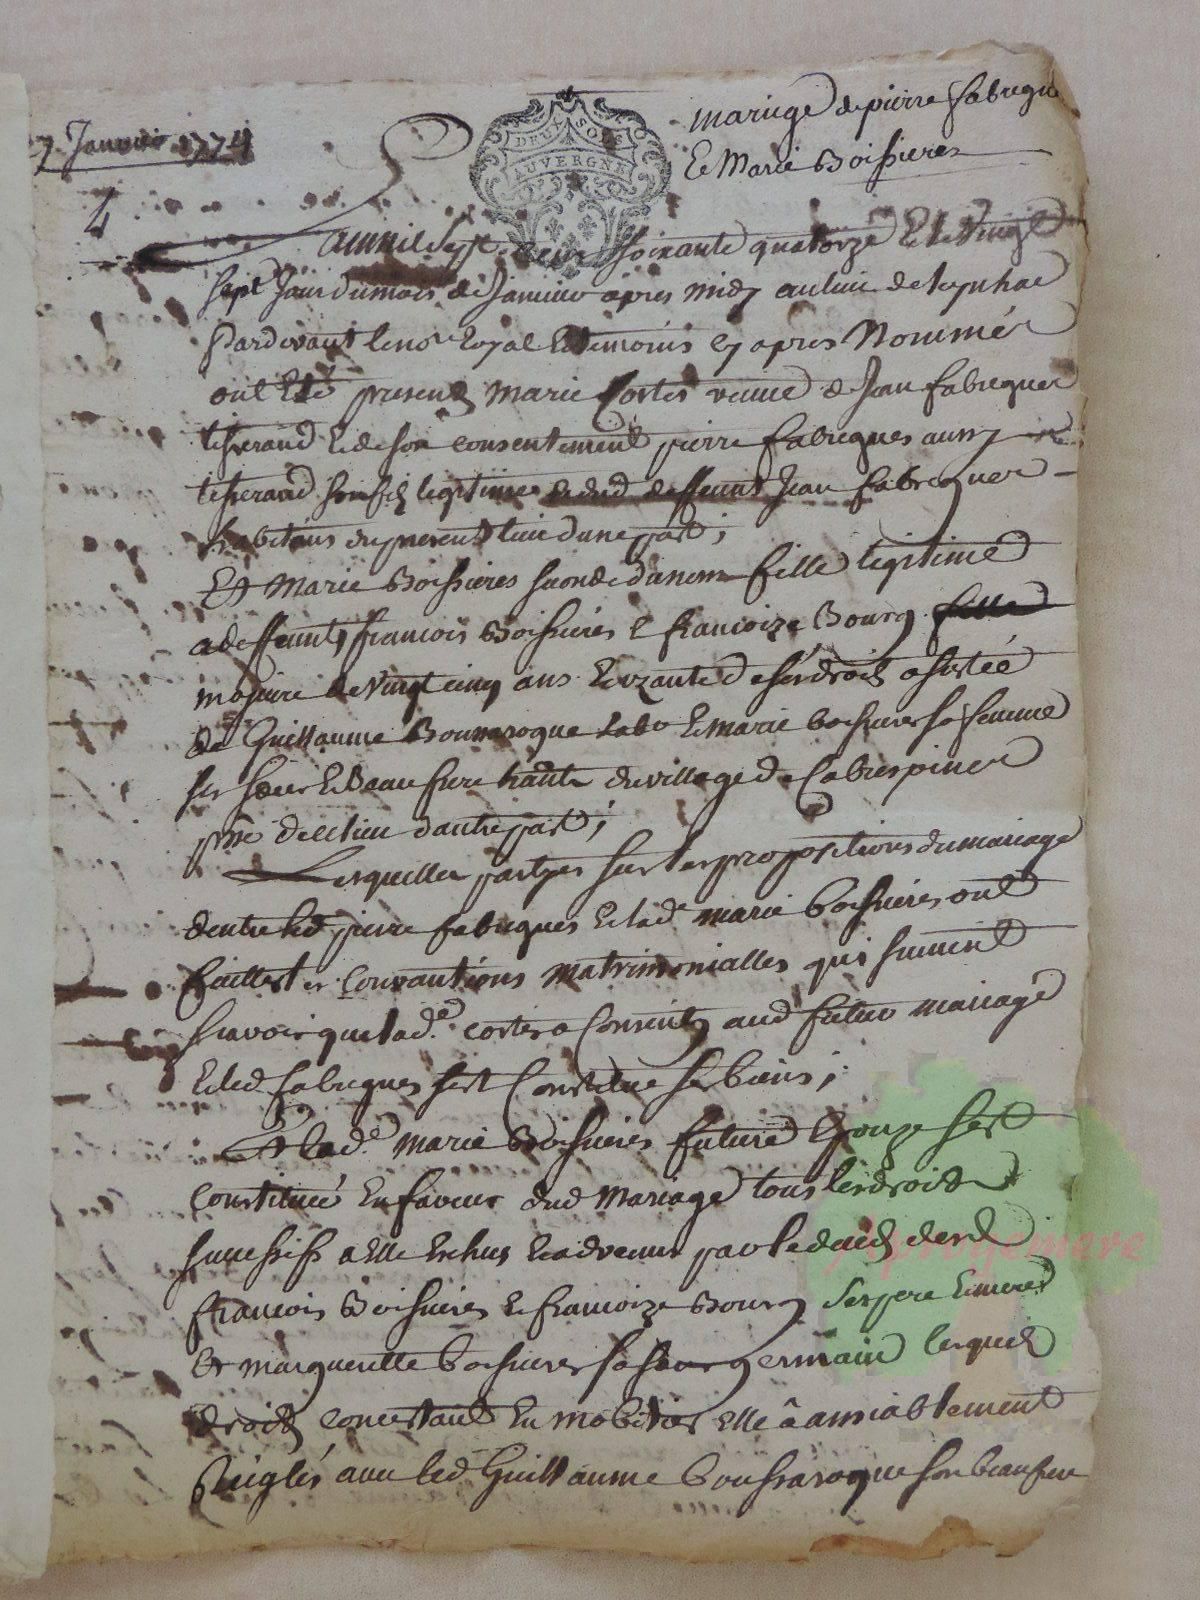 7 Janvier 1774
mariage de pierre fabregue
Et Marie Boissieres
4
DEUX SOLS
AUVERGNE
Lan mil sept cens soixante quatorze Et le vingt
sept Jour du mois de Janvier apres midy au lieu de
Pardevant le nore Royal Et temoins cy apres Nommés
ont Eté presens marie Cortes veuve de Jean fabregues
tisserand Et de son consentement pierre fabregues aussy
tisserand son fils legitime et dud deffeunt Jean fabregues
habitans du present lieu dune part ;
Et Marie Boissieres fille legitime
a deffeunts francois Boissieres & francoize Bourg
majeure de vingt cinq ans Et uzante de ses droits assistée
de Guillaume Boussaroque labor Et marie boissieres sa femme
ses soeur Et Beau frere hants du village de Cabrespines
psse dautre part ;
Lesquelles partyes sur les propositions du mariage
dentre led pierre fabregues Et lade marie boissieres ont
faittes les Convantions matrimonialles qui suivent
scavoir que lade cortes a Consenty aud futur mariage
Et led fabregues sest Constitué ses biens ;
Et lade marie Boissieres future Epouze sest
Constituée En faveur dud Mariage tous les droits
sucessifs a Elle Echus Et advenus par le deceds desd
francois Boissieres & francoize Bourg ses pere Et mere
Et margueritte boissieres sa soeur germaine lesquels
droits concistant En mobilier Elle a amiablement
Réglés avec led Guillaume boussaroque son beau frere